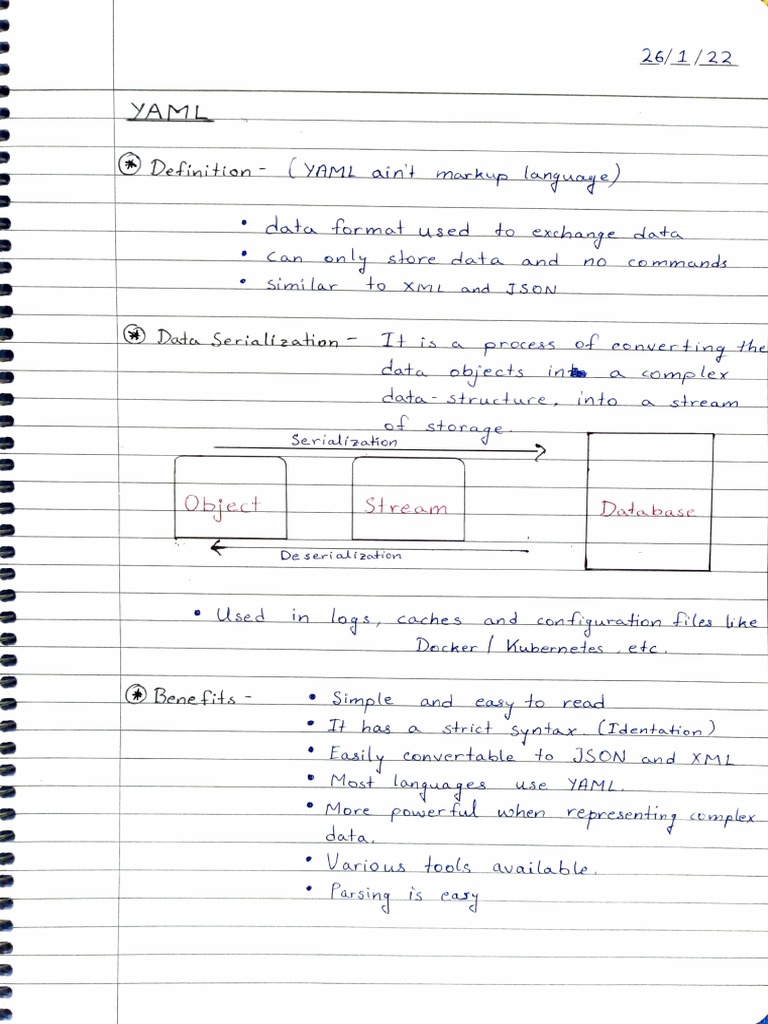 26/1/22
YAML
* Definition - (YAML ain't markup language)
• data format used to exchange data
• can only store data and no commands
• similar to XML and JSON
* Data Serialization - It is a process of converting the
data objects in a complex
data-structure, into a stream
of storage.
Serialization
Object Stream Database
Deserialization
• Used in logs, caches and configuration files like
Docker / Kubernetes, etc.
* Benefits - • Simple and easy to read
• It has a strict syntax. (Identation)
• Easily convertable to JSON and XML
• Most languages use YAML.
• More powerful when representing complex
data.
• Various tools available.
• Parsing is easy